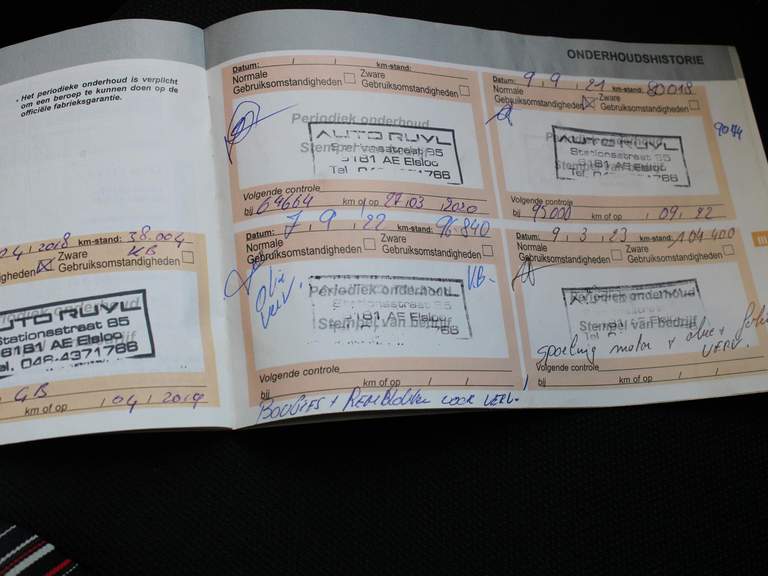 ONDERHOUDSHISTORIE
• Het periodieke onderhoud is verplicht
om een beroep te kunnen doen op de
officiële fabrieksgarantie.
04 / 2018 km-stand: 38.004
Zware
Gebruiksomstandigheden
AUTO RUYL
Stationsstraat 85
6181 AE Elsloo
Tel. 046-4371766
km of op / 04 / 2019
Datum: / / km-stand:
Normale Zware
Gebruiksomstandigheden Gebruiksomstandigheden
Periodiek onderhoud
AUTO RUYL
Stempel van bedrijf
6181 AE Elsloo
Volgende controle
bij 69664 km of op 27 / 03 / 2020
Datum: 9 / 9 / 21 km-stand: 80018
Normale Zware
Gebruiksomstandigheden Gebruiksomstandigheden
AUTO RUYL
Stationsstraat 85
6181 AE Elsloo
Volgende controle
bij 95000 km of op / 09 / 22
Datum: 7 / 9 / 22 km-stand: 96.840
Normale Zware
Gebruiksomstandigheden Gebruiksomstandigheden
olie
verv.
Periodiek onderhoud
6181 AE Elsloo
Stempel van bedrijf
Volgende controle
bij km of op / /
BOUGIES + Remblokken voor verv.
Datum: 9 / 3 / 23 km-stand: 104400
Normale Zware
Gebruiksomstandigheden Gebruiksomstandigheden
Periodiek onderhoud
Stempel van bedrijf
spoeling motor + olie +
verv.
Volgende controle
bij km of op / /